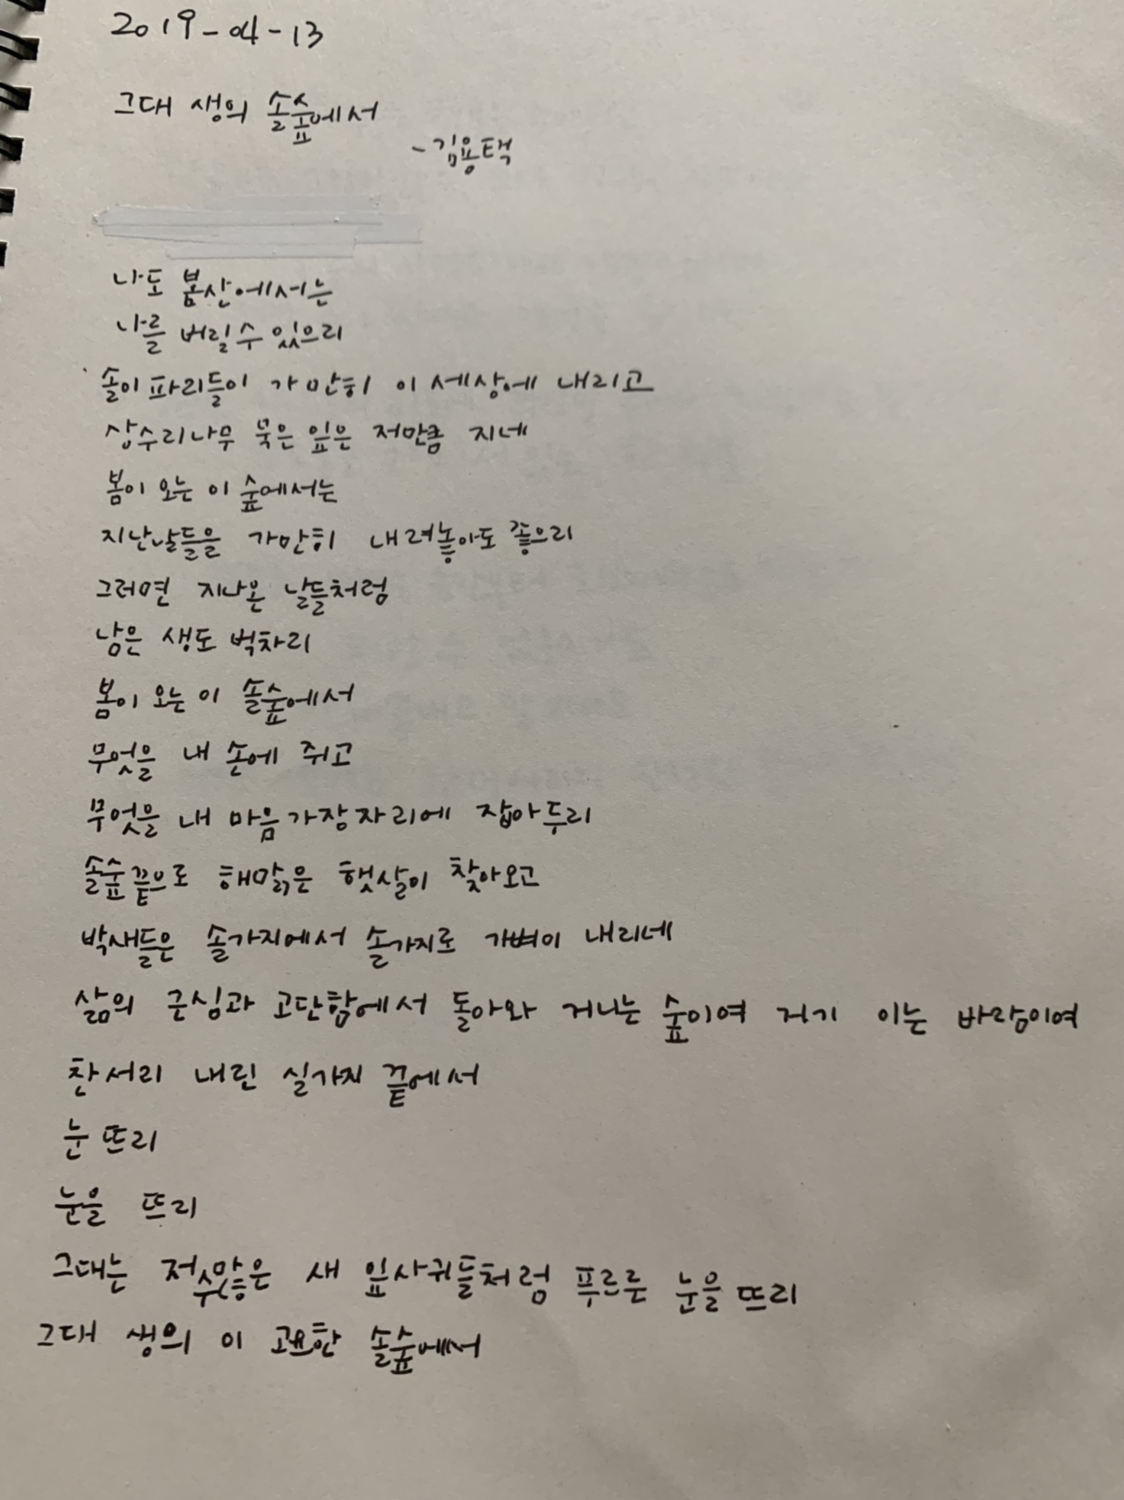 2019-04-13
그대 생의 솔숲에서
-김용택
나도 봄산에서는
나를 버릴 수 있으리
솔이파리들이 가만히 이 세상에 내리고
상수리나무 묵은 잎은 저만큼 지네
봄이 오는 이 숲에서는
지난날들을 가만히 내려놓아도 좋으리
그러면 지나온 날들처럼
남은 생도 벅차리
봄이 오는 이 솔숲에서
무엇을 내 손에 쥐고
무엇을 내 마음 가장자리에 잡아두리
솔숲 끝으로 해맑은 햇살이 찾아오고
박새들은 솔가지에서 솔가지로 가벼이 내리네
삶의 근심과 고단함에서 돌아와 거니는 숲이여 거기 이는 바람이여
찬서리 내린 실가지 끝에서
눈 뜨리
눈을 뜨리
그대는 저 수많은 새 잎사귀들처럼 푸르른 눈을 뜨리
그대 생의 이 고요한 솔숲에서